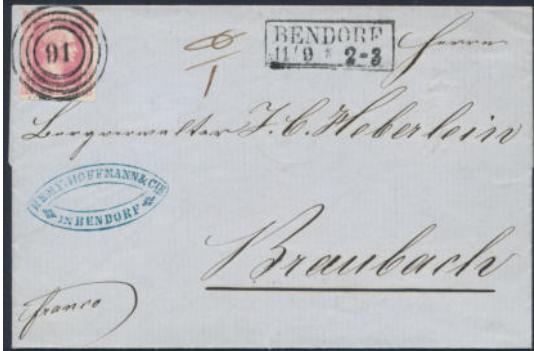 91
BENDORF
11 9 * 2-3
Herrn
Bergverwalter J. C. Heberlein
REMY, HOFFMANN & CIE
IN BENDORF
Braubach
franco